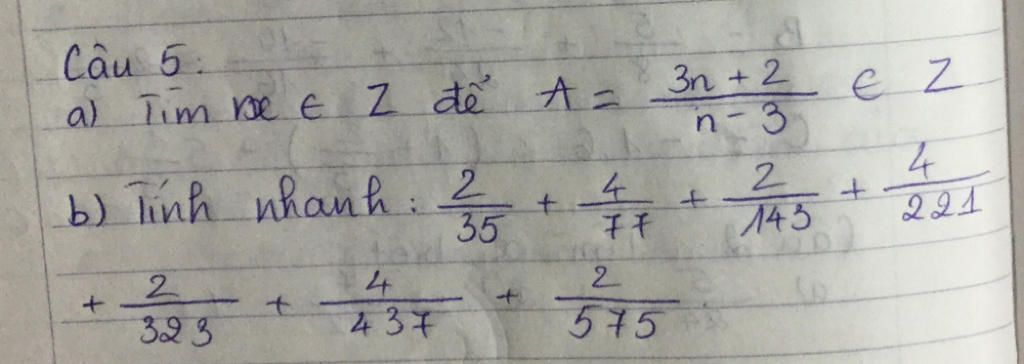 Câu 5:
a) Tìm n ∈ Z để A = \frac{3n + 2}{n - 3} ∈ Z
b) Tính nhanh: \frac{2}{35} + \frac{4}{77} + \frac{2}{143} + \frac{4}{221}
+ \frac{2}{323} + \frac{4}{437} + \frac{2}{575}